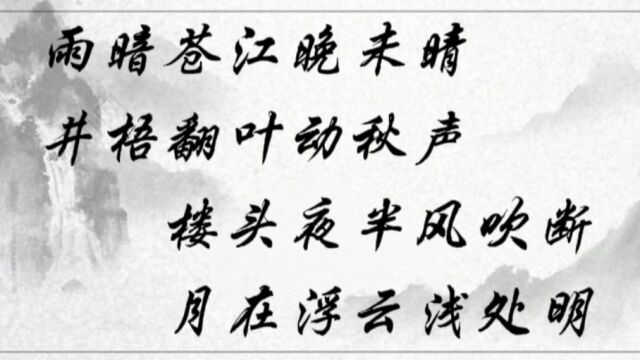 雨暗苍江晚未晴
井梧翻叶动秋声
楼头夜半风吹断
月在浮云浅处明